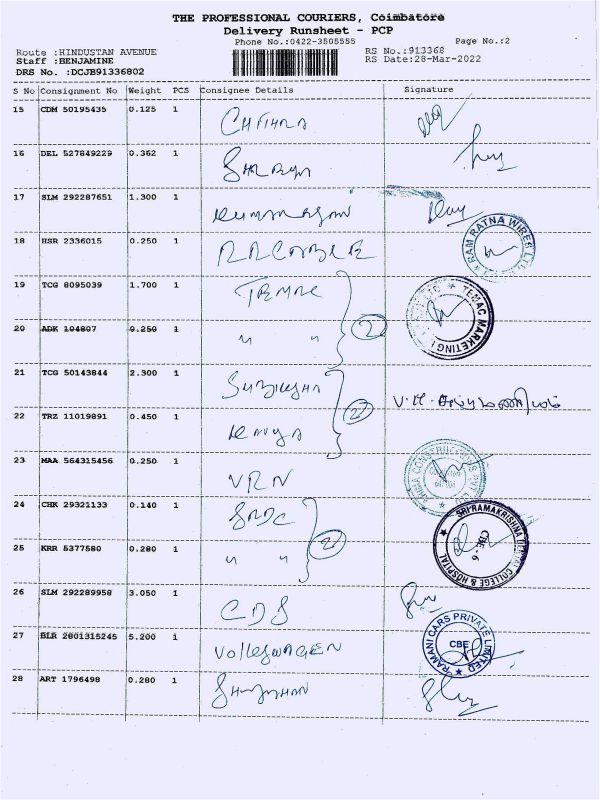 THE PROFESSIONAL COURIERS, Coimbatore
Delivery Runsheet - PCP
Phone No.:0422-3505555 Page No.:2
Route :HINDUSTAN AVENUE RS No.:913368
Staff :BENJAMINE RS Date:28-Mar-2022
DRS No. :DCJB91336802
S No Consignment No Weight PCS Consignee Details Signature
15 CDM 50195435 0.125 1
16 DEL 527849229 0.362 1
17 SLM 292287651 1.300 1
18 HSR 2336015 0.250 1 RR CABLE
RAM RATNA WIRES LTD
19 TCG 8095039 1.700 1
TEMAC MARKETING
20 ADK 104807 0.250 1 " " 2
21 TCG 50143844 2.300 1
22 TRZ 11019891 0.450 1 2
23 MAA 564315456 0.250 1 VRN
24 CHK 29321133 0.140 1 SRDC
SRI RAMAKRISHNA DENTAL COLLEGE & HOSPITAL
CBE-6
25 KRR 5377580 0.280 1 " " 2
26 SLM 292289958 3.050 1 CDS
27 BLR 2801315245 5.200 1 VOLLESWAGEN
RAMANI CARS PRIVATE LIMITED
CBE
28 ART 1796498 0.280 1